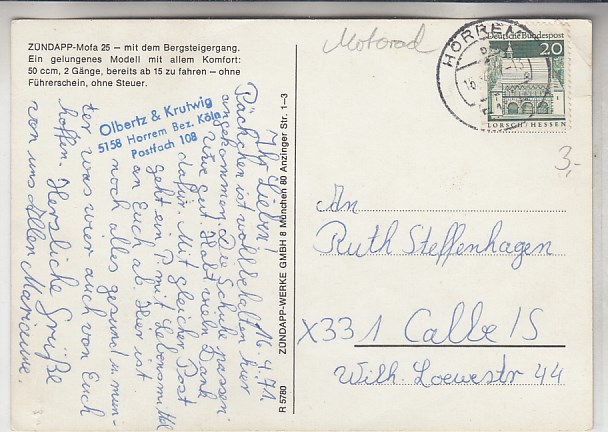 ZÜNDAPP-Mofa 25 — mit dem Bergsteigergang.
Ein gelungenes Modell mit allem Komfort:
50 ccm, 2 Gänge, bereits ab 15 zu fahren — ohne
Führerschein, ohne Steuer.
Olbertz & Krutwig
5158 Horrem Bez. Köln
Postfach 108
16. 4. 71.
Ihr Lieben!
Päckchen ist wohlbehalten hier
angekommen. Die Schuhe passen
gut. Habt vielen Dank
dafür. Mit gleicher Post
geht ein P. mit Lebensm.
an Euch ab. Hier ist
noch alles gesund u. mun-
ter was wir auch von Euch
hoffen. Herzliche Grüße
von uns Allen Marianne.
R 5780 ZÜNDAPP-WERKE GMBH 8 München 80 Anzinger Str. 1–3
Motorad
HORREM
Deutsche Bundespost
20
LORSCH/HESSEN
3,-
An
Ruth Steffenhagen
X331 Calbe/S
Wilh. Loewestr 44